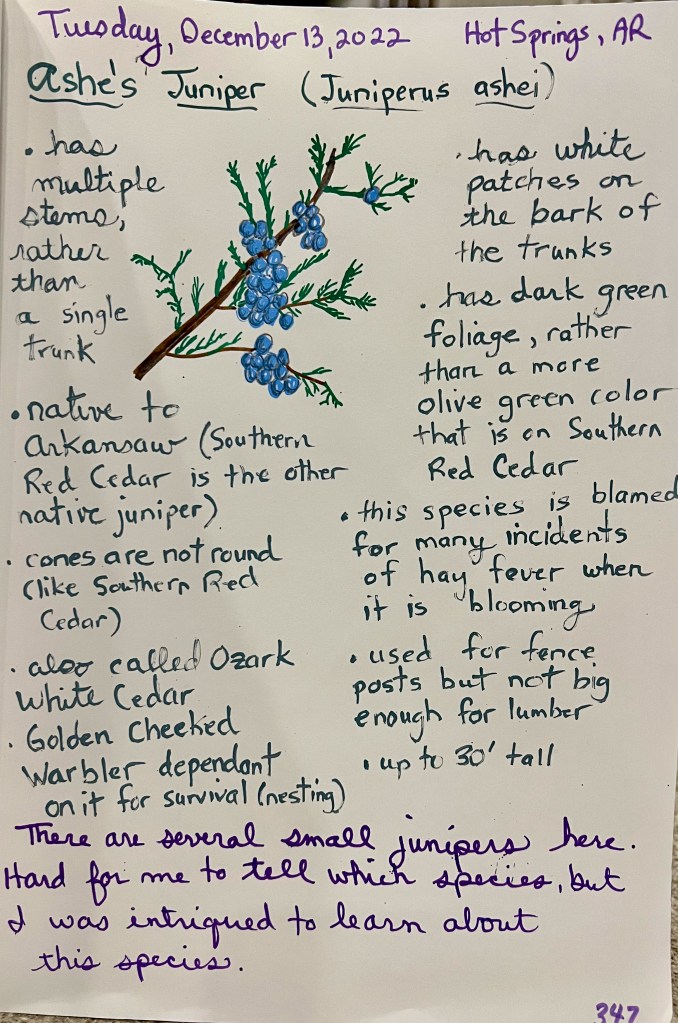 Tuesday, December 13, 2022 Hot Springs, AR
Ashe's Juniper (Juniperus ashei)
• has
multiple
stems,
rather
than
a single
trunk
• native to
Arkansaw (Southern
Red Cedar is the other
native juniper)
• cones are not round
(like Southern Red
Cedar)
• also called Ozark
White Cedar
• Golden Cheeked
Warbler dependant
on it for survival (nesting)
• has white
patches on
the bark of
the trunks
• has dark green
foliage, rather
than a more
olive green color
that is on Southern
Red Cedar
• this species is blamed
for many incidents
of hay fever when
it is blooming
• used for fence
posts but not big
enough for lumber
• up to 30' tall
There are several small junipers here.
Hard for me to tell which species, but
I was intriqued to learn about
this species.
347